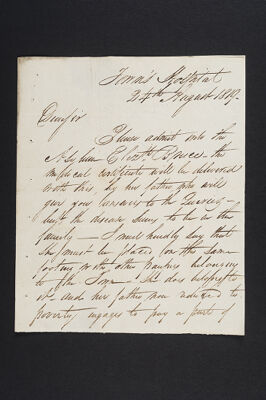 Town's Hospital
24th August 1819.
Dear Sir
Please admit into the
Asylum Elizth Bruce - the
medical certificate will be delivered
with this, by her father, who will
give you answers to the Queries -
but the disease seems to be in the
family - I need hardly say that
she must be placed on the same
footing with other Paupers belonging
to the Town - She does
it - and her father, now reduced to
poverty, engages to pay a part of